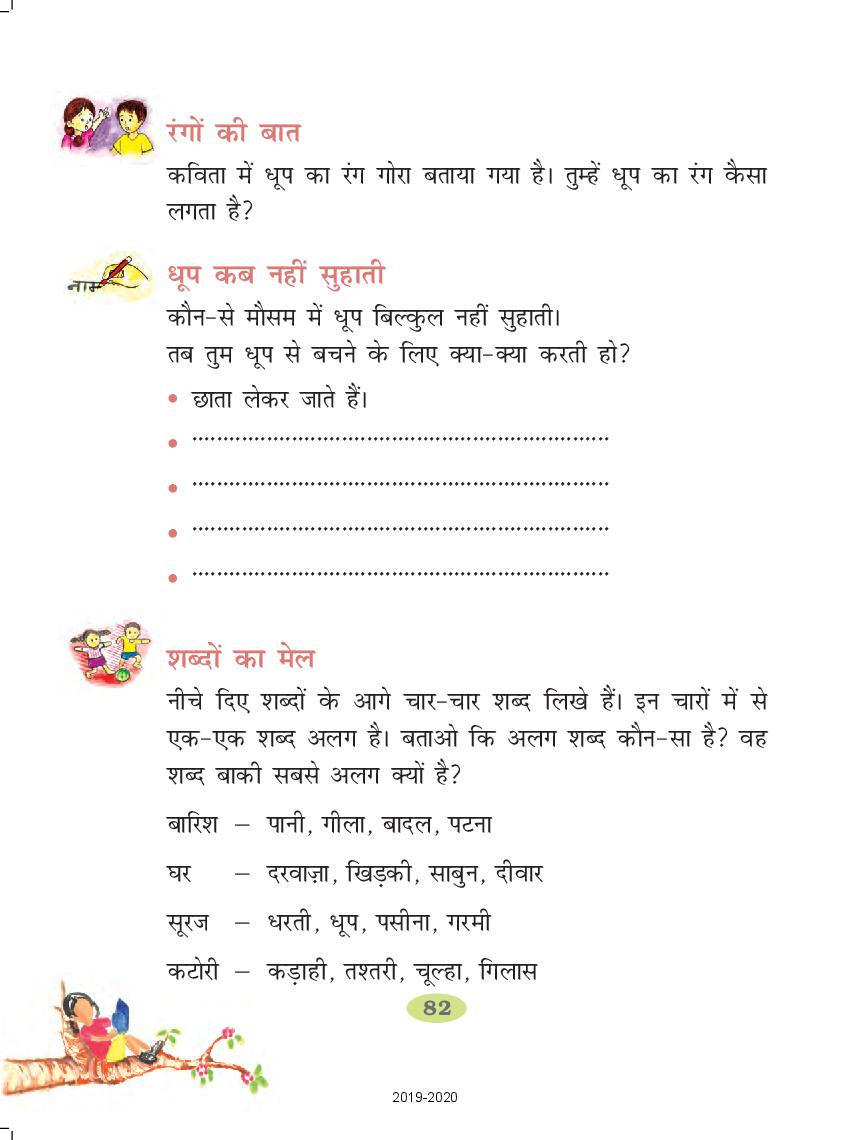 रंगों की बात
कविता में धूप का रंग गोरा बताया गया है। तुम्हें धूप का रंग कैसा
लगता है?
नाम
धूप कब नहीं सुहाती
कौन-से मौसम में धूप बिल्कुल नहीं सुहाती।
तब तुम धूप से बचने के लिए क्या-क्या करती हो?
• छाता लेकर जाते हैं।
• ....................................................................
• ....................................................................
• ....................................................................
• ....................................................................
शब्दों का मेल
नीचे दिए शब्दों के आगे चार-चार शब्द लिखे हैं। इन चारों में से
एक-एक शब्द अलग है। बताओ कि अलग शब्द कौन-सा है? वह
शब्द बाकी सबसे अलग क्यों है?
बारिश – पानी, गीला, बादल, पटना
घर – दरवाज़ा, खिड़की, साबुन, दीवार
सूरज – धरती, धूप, पसीना, गरमी
कटोरी – कड़ाही, तश्तरी, चूल्हा, गिलास
82
2019-2020